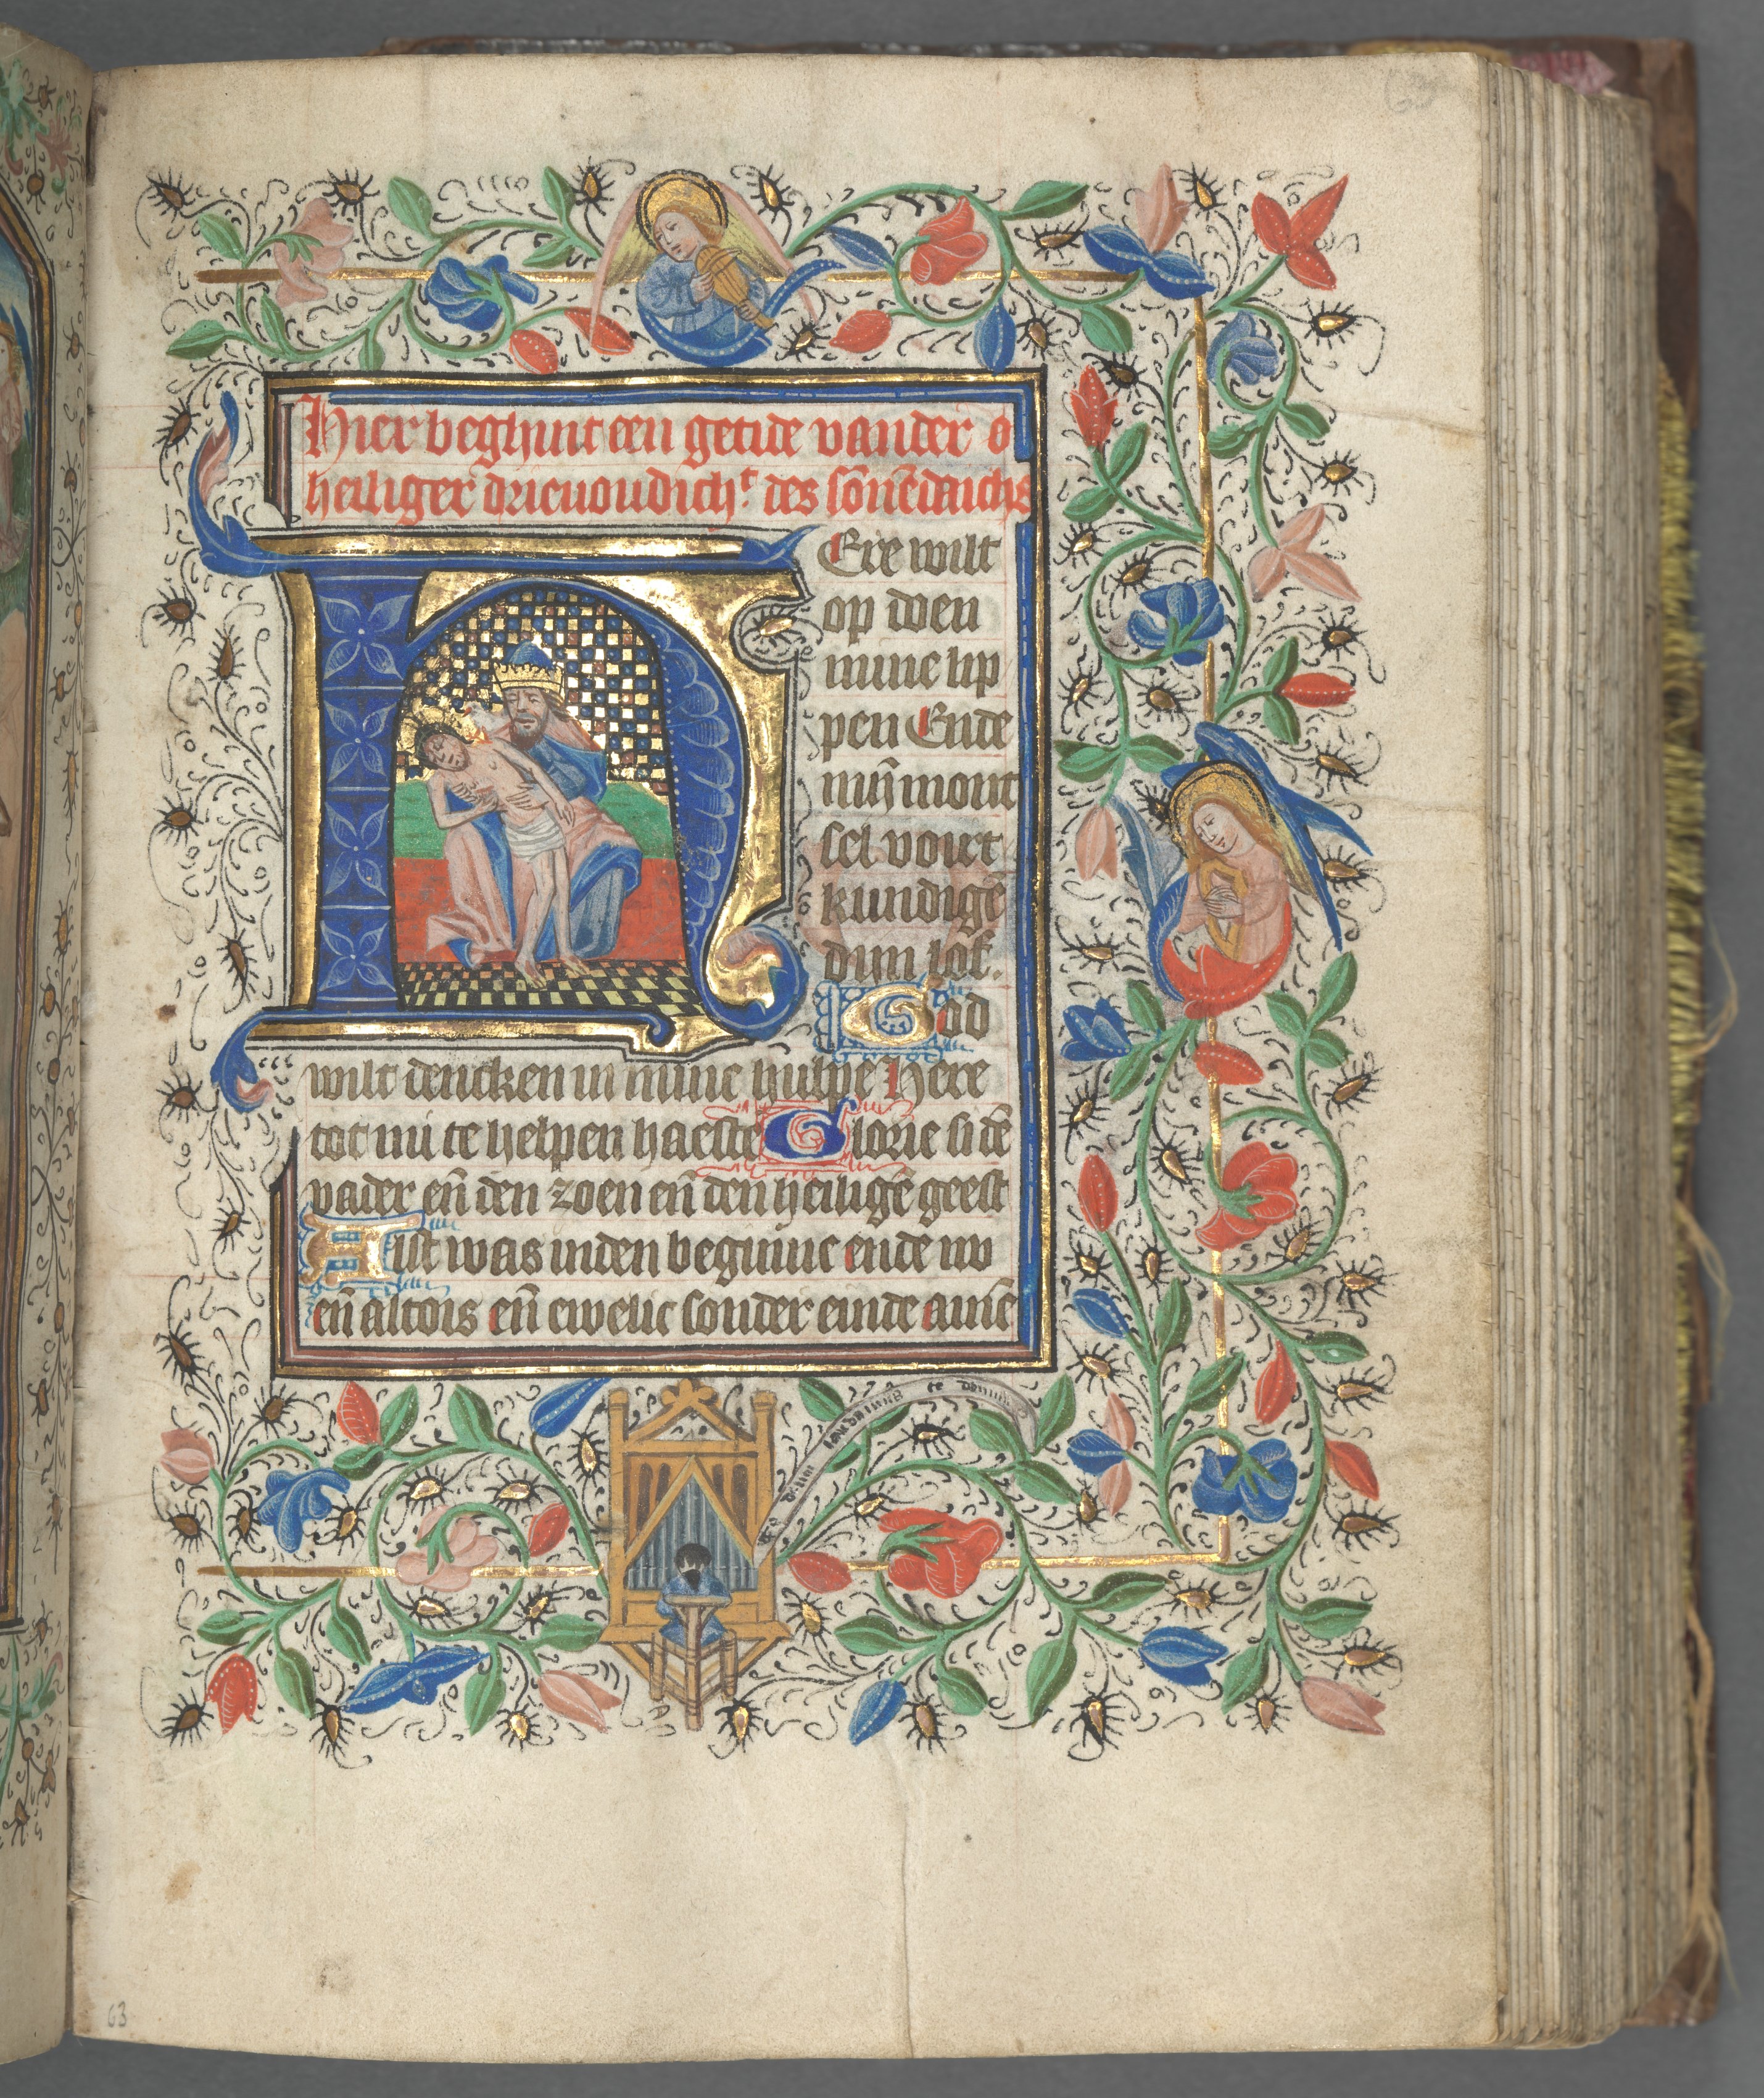 Hier beghint een getide vander o
heiliger drievoudich.t des sonnēdaichs
HEre wilt
op doen
mine lip
pen Ende
mȳ mont
sel vort
kundigē
dijn lof.
God
wilt dencken in mine hulpe Here
tot mi te helpen haeste Glorie si dē
vader eñ den zoen eñ den heiligē geest
Alst was inden beginne ende nv
eñ altois eñ ewelic sonder einde amē
te deum laudamus te dominū
63